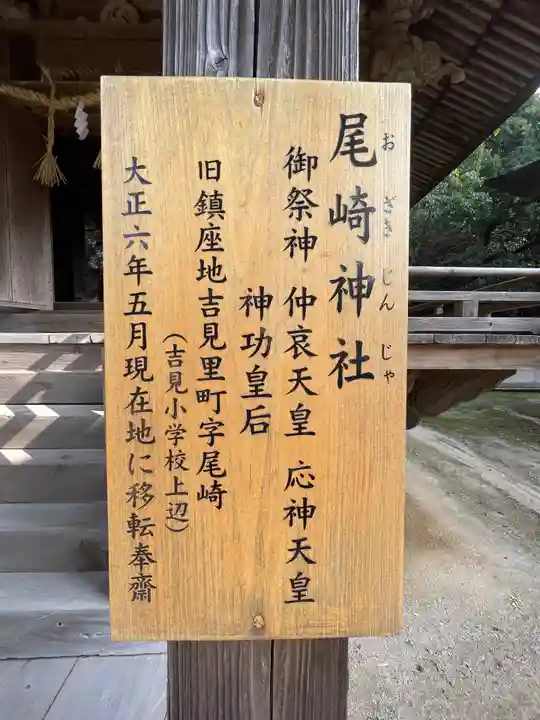 尾崎神社
おざきじんじゃ
御祭神 仲哀天皇 応神天皇
神功皇后
旧鎮座地吉見里町字尾崎
(吉見小学校上辺)
大正六年五月現在地に移転奉齋